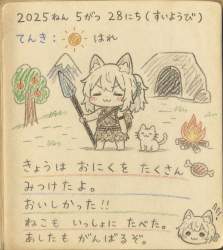 2025ねん 5がつ 28にち(すいようび)
てんき: はれ
きょうは おにくを たくさん
みつけたよ。
おいしかった!!
ねこも いっしょに たべた。
あしたも がんばるぞ。